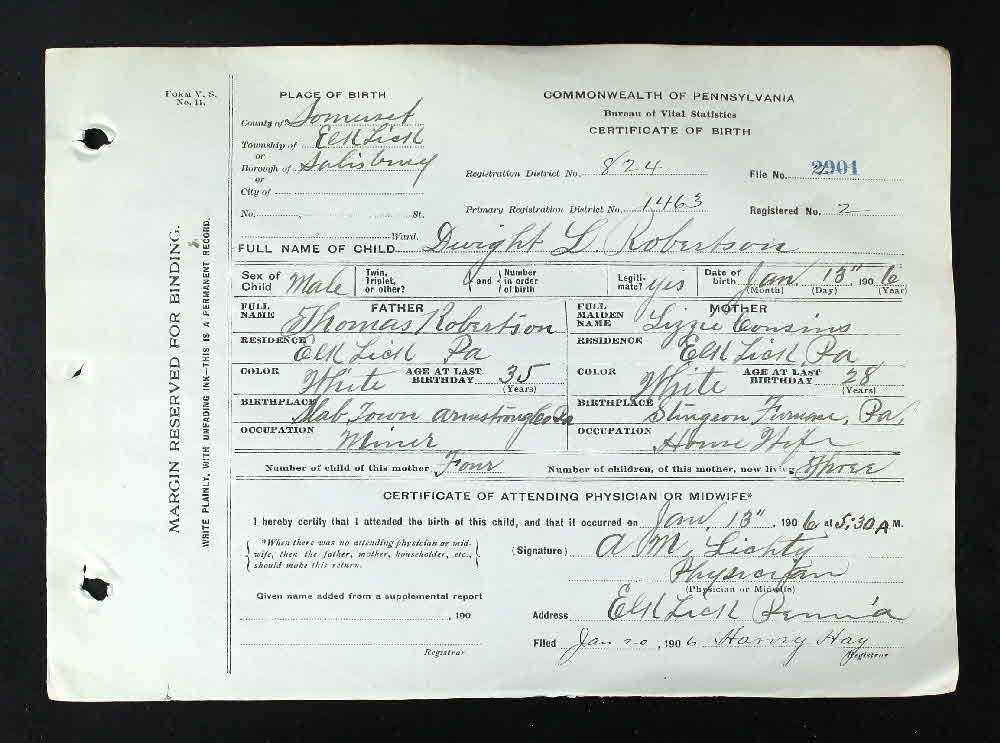 FORM V. S.
No. 11.
PLACE OF BIRTH
COMMONWEALTH OF PENNSYLVANIA
Bureau of Vital Statistics
CERTIFICATE OF BIRTH
County of Somerset
Township of Elk Lick
or
Borough of Salisbury
or
City of
No. St.
Ward.
Registration District No. 824
File No. 2901
Primary Registration District No. 1463
Registered No. 2
FULL NAME OF CHILD Dwight L. Robertson
Sex of Child Male Twin, Triplet, or other? and Number in order of birth Legiti- mate? yes Date of birth Jan 13" 1906
(Month) (Day) (Year)
FATHER
FULL NAME Thomas Robertson
RESIDENCE Elk Lick Pa
COLOR White AGE AT LAST BIRTHDAY 35
(Years)
BIRTHPLACE Slab Town Armstrong Co Pa
OCCUPATION Miner
MOTHER
FULL MAIDEN NAME Lizzie Cousins
RESIDENCE Elk Lick, Pa
COLOR White AGE AT LAST BIRTHDAY 28
(Years)
BIRTHPLACE Sturgeon Furnase, Pa.
OCCUPATION House Wife
Number of child of this mother Four Number of children, of this mother, now living Three
CERTIFICATE OF ATTENDING PHYSICIAN OR MIDWIFE*
I hereby certify that I attended the birth of this child, and that it occurred on Jan, 13", 1906 at 5:30 A M.
*When there was no attending physician or mid-
wife, then the father, mother, householder, etc.,
should make this return.
(Signature) A M. Lichty
Physician
(Physician or Midwife)
Given name added from a supplemental report
, 190
Registrar
Address Elk Lick Penn'a
Filed Jan 20, 1906 Harry Hay
Registrar
MARGIN RESERVED FOR BINDING.
WRITE PLAINLY, WITH UNFADING INK—THIS IS A PERMANENT RECORD.